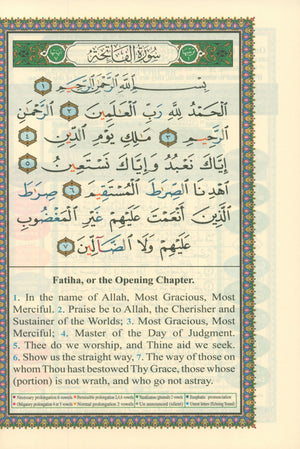 سورة الفاتحة
بِسْمِ ٱللَّهِ ٱلرَّحْمَٰنِ ٱلرَّحِيمِ ١
ٱلْحَمْدُ لِلَّهِ رَبِّ ٱلْعَٰلَمِينَ ٢ ٱلرَّحْمَٰنِ
ٱلرَّحِيمِ ٣ مَٰلِكِ يَوْمِ ٱلدِّينِ ٤
إِيَّاكَ نَعْبُدُ وَإِيَّاكَ نَسْتَعِينُ ٥
ٱهْدِنَا ٱلصِّرَٰطَ ٱلْمُسْتَقِيمَ ٦ صِرَٰطَ
ٱلَّذِينَ أَنْعَمْتَ عَلَيْهِمْ غَيْرِ ٱلْمَغْضُوبِ
عَلَيْهِمْ وَلَا ٱلضَّآلِّينَ ٧
Fatiha, or the Opening Chapter.
1. In the name of Allah, Most Gracious, Most
Merciful. 2. Praise be to Allah, the Cherisher and
Sustainer of the Worlds; 3. Most Gracious, Most
Merciful; 4. Master of the Day of Judgment.
5. Thee do we worship, and Thine aid we seek.
6. Show us the straight way, 7. The way of those on
whom Thou hast bestowed Thy Grace, those whose
(portion) is not wrath, and who go not astray.
Necessary prolongation 6 vowels Permissible prolongation 2,4,6 vowels Nazalization (ghunnah) 2 vowels Emphatic pronunciation
Obligatory prolongation 4 or 5 vowels Normal prolongation 2 vowels Un announced (silent)